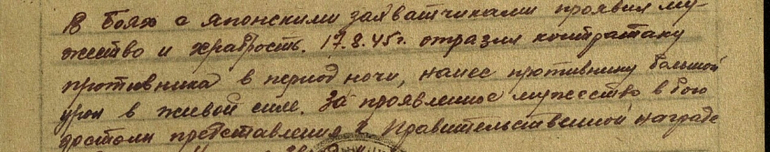 В боях с японскими захватчиками проявил му-
жество и храбрость. 17.8.45г. отразил контратаку
противника в период ночи, нанес противнику большой
урон в живой силе. За проявленное мужество в бою
достоин представления к Правительственной награде